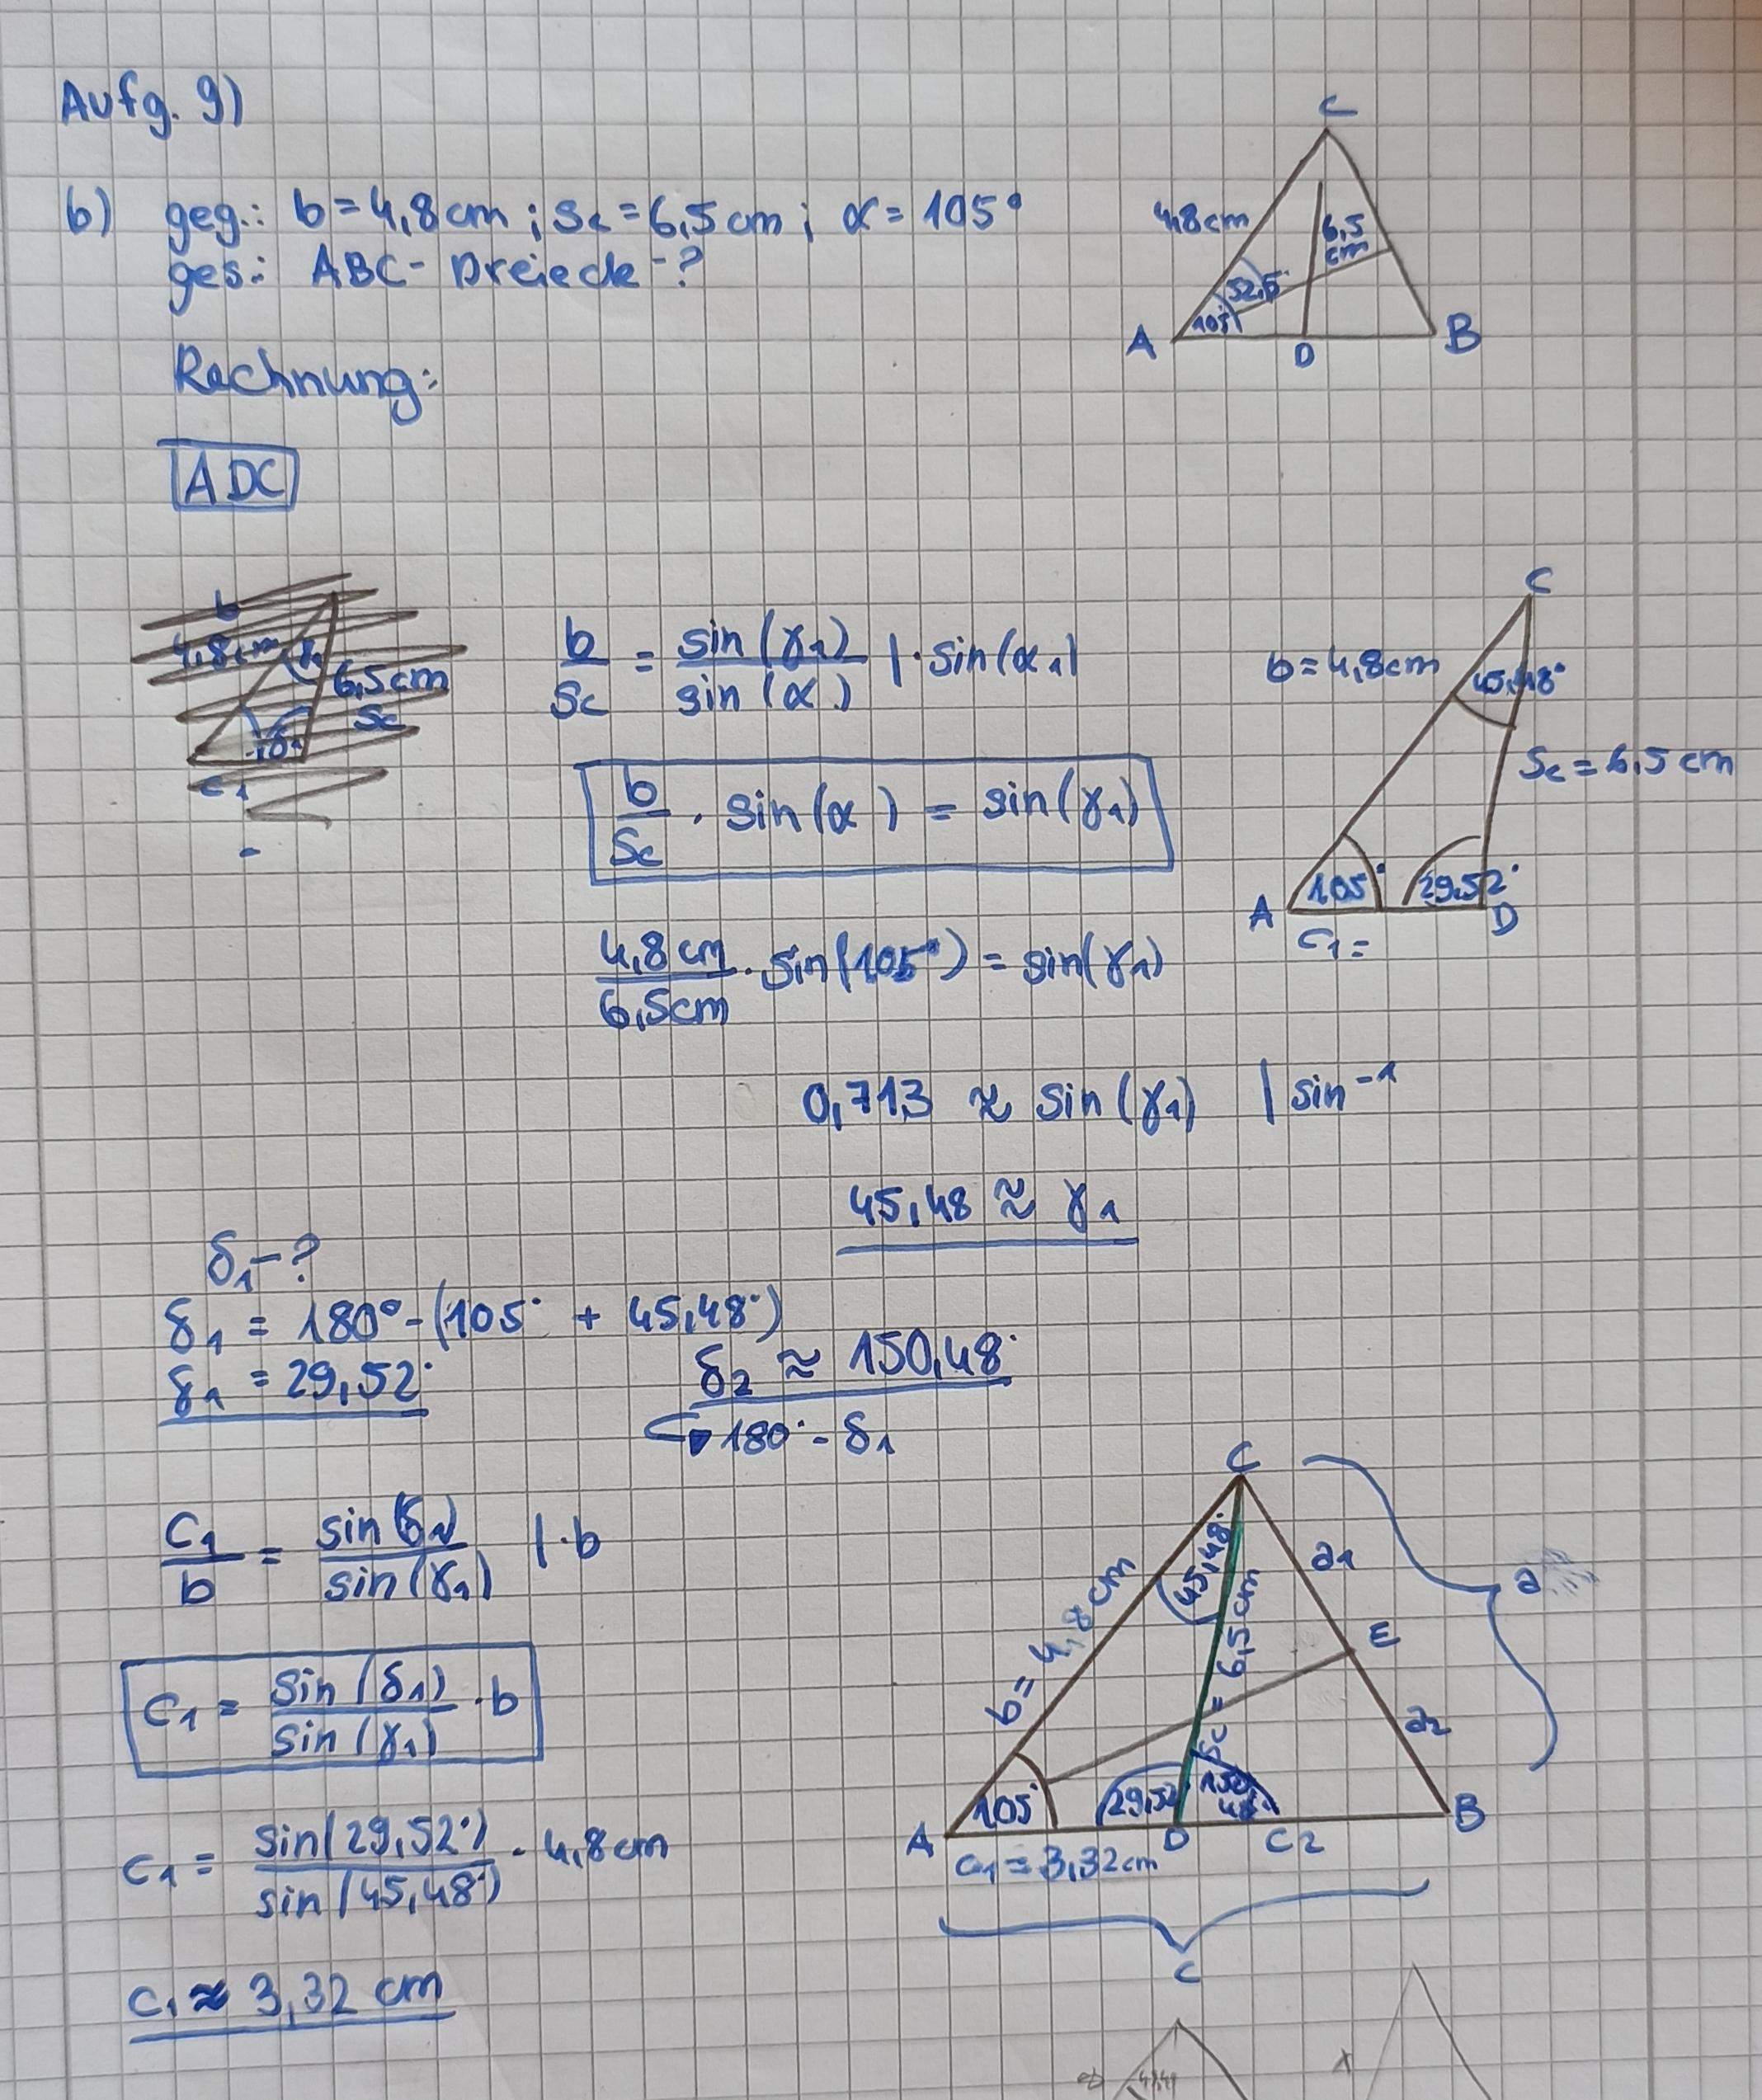 Aufg. 9)
b) geg.: b = 4,8 cm ; sc = 6,5 cm ; α = 105°
ges.: ABC - Dreieck - ?
C
4,8 cm
6,5 cm
52,5°
105°
A D B
Rechnung:
ADC
b
4,8 cm γ1
6,5 cm
sc
δ1
c1
b/sc = sin(γ1)/sin(α) | · sin(α1)
b/sc · sin(α) = sin(γ1)
4,8 cm/6,5 cm · sin(105°) = sin(γ1)
0,713 ≈ sin(γ1) | sin⁻¹
45,48 ≈ γ1
C
b = 4,8 cm
45,48°
sc = 6,5 cm
105° 29,52°
A D
c1 =
δ1 - ?
δ1 = 180° - (105° + 45,48°)
δ1 = 29,52°
δ2 ≈ 150,48°
↳ 180° - δ1
c1/b = sin(δ1)/sin(γ1) | · b
c1 = sin(δ1)/sin(γ1) · b
c1 = sin(29,52°)/sin(45,48°) · 4,8 cm
c1 ≈ 3,32 cm
C
45,48°
a1
a
b = 4,8 cm
sc = 6,5 cm
E
a2
105° 29,52° 150,48°
A D B
c1 = 3,32 cm c2
c